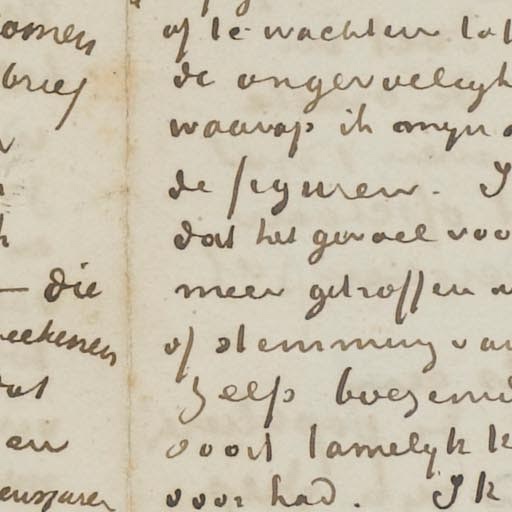 omen
brief
h
— die
teekenen
dat
en
of te wachten tot
de ongevoeligh
waarop ik mijn
de figuren. I
dat het gevoel voo
meer getroffen
of stemming van
zelf boezem
ooit tamelijk k
voor had. Ik